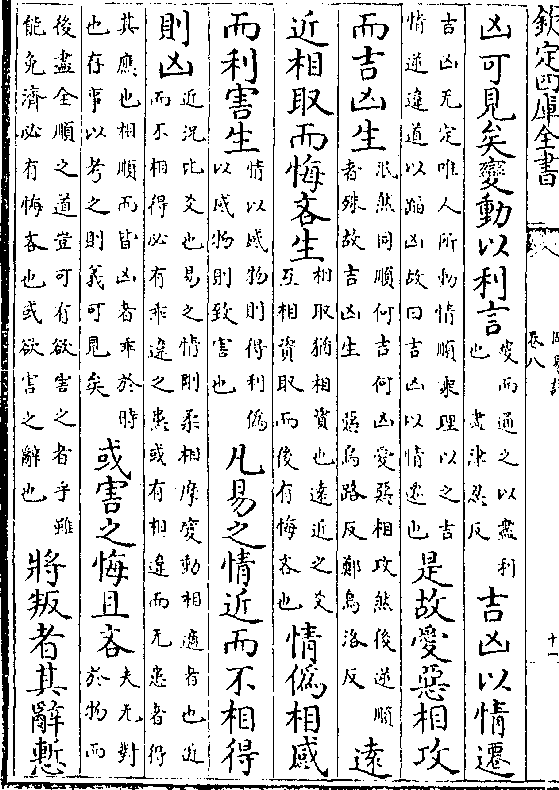 欽定四庫全書
卷八
十一
凶可見矣變動以利言
變而通之以盡利
也 盡津忍反
吉凶以情遷
吉凶无定唯人所動情順乘理以之吉
情逆違道以蹈凶故曰吉凶以情遷也
是故愛惡相攻
而吉凶生
泯然同順何吉何凶愛惡相攻然後逆順
者殊故吉凶生 惡烏路反鄭烏洛反
遠
近相取而悔吝生
相取猶相資也遠近之爻
互相資取而後有悔吝也
情僞相感
而利害生
情以感物則得利僞
以感物則致害也
凡易之情近而不相得
則凶
近況比爻也易之情剛柔相摩變動相適者也近
而不相得必有乖違之患或有相違而无患者得
其應也相順而皆凶者乖於時
也存事以考之則義可見矣
或害之悔且吝
夫无對
於物而
後盡全順之道豈可有欲害之者乎雖
能免濟必有悔吝也或欲害之辭也
將叛者其辭慙